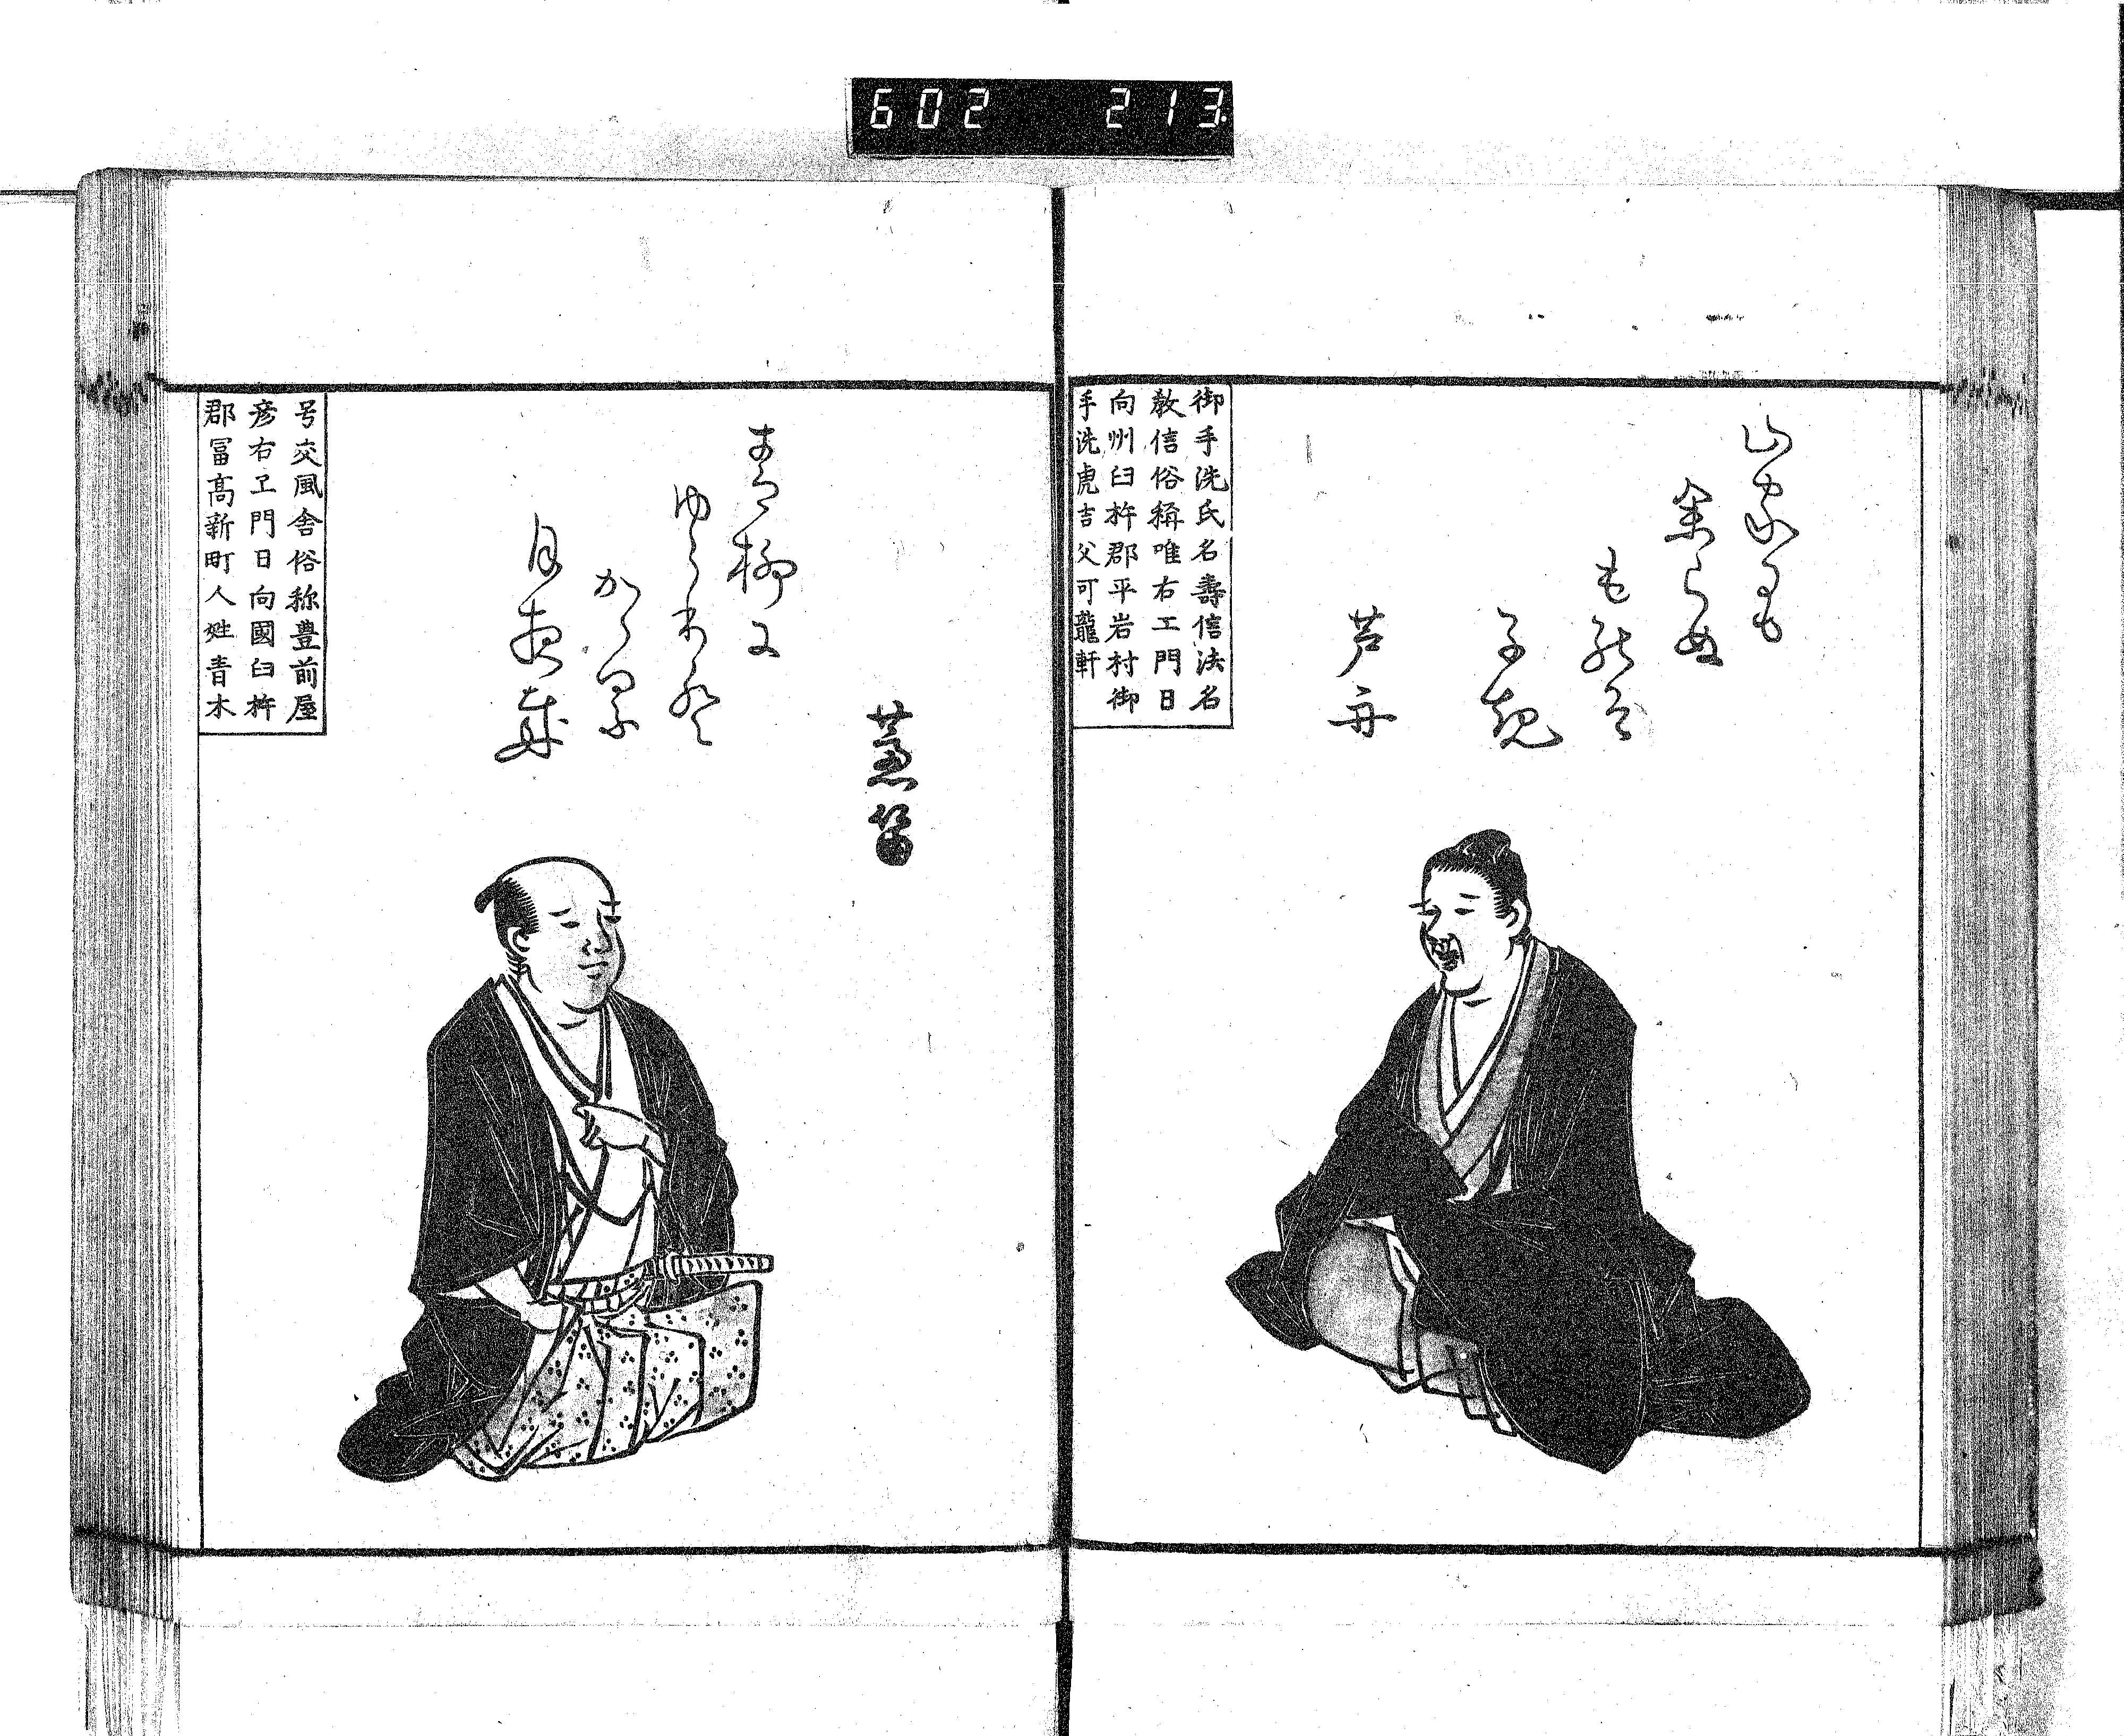 602 213
山家
子規
芦舟
御手洗氏名壽信法名
教信俗稱唯右工門日
向州臼杵郡平岩村御
手洗虎吉父可龍軒
青柳に
月夜哉
号交風舎俗称豊前屋
彦右エ門日向國臼杵
郡冨髙新町人姓青木